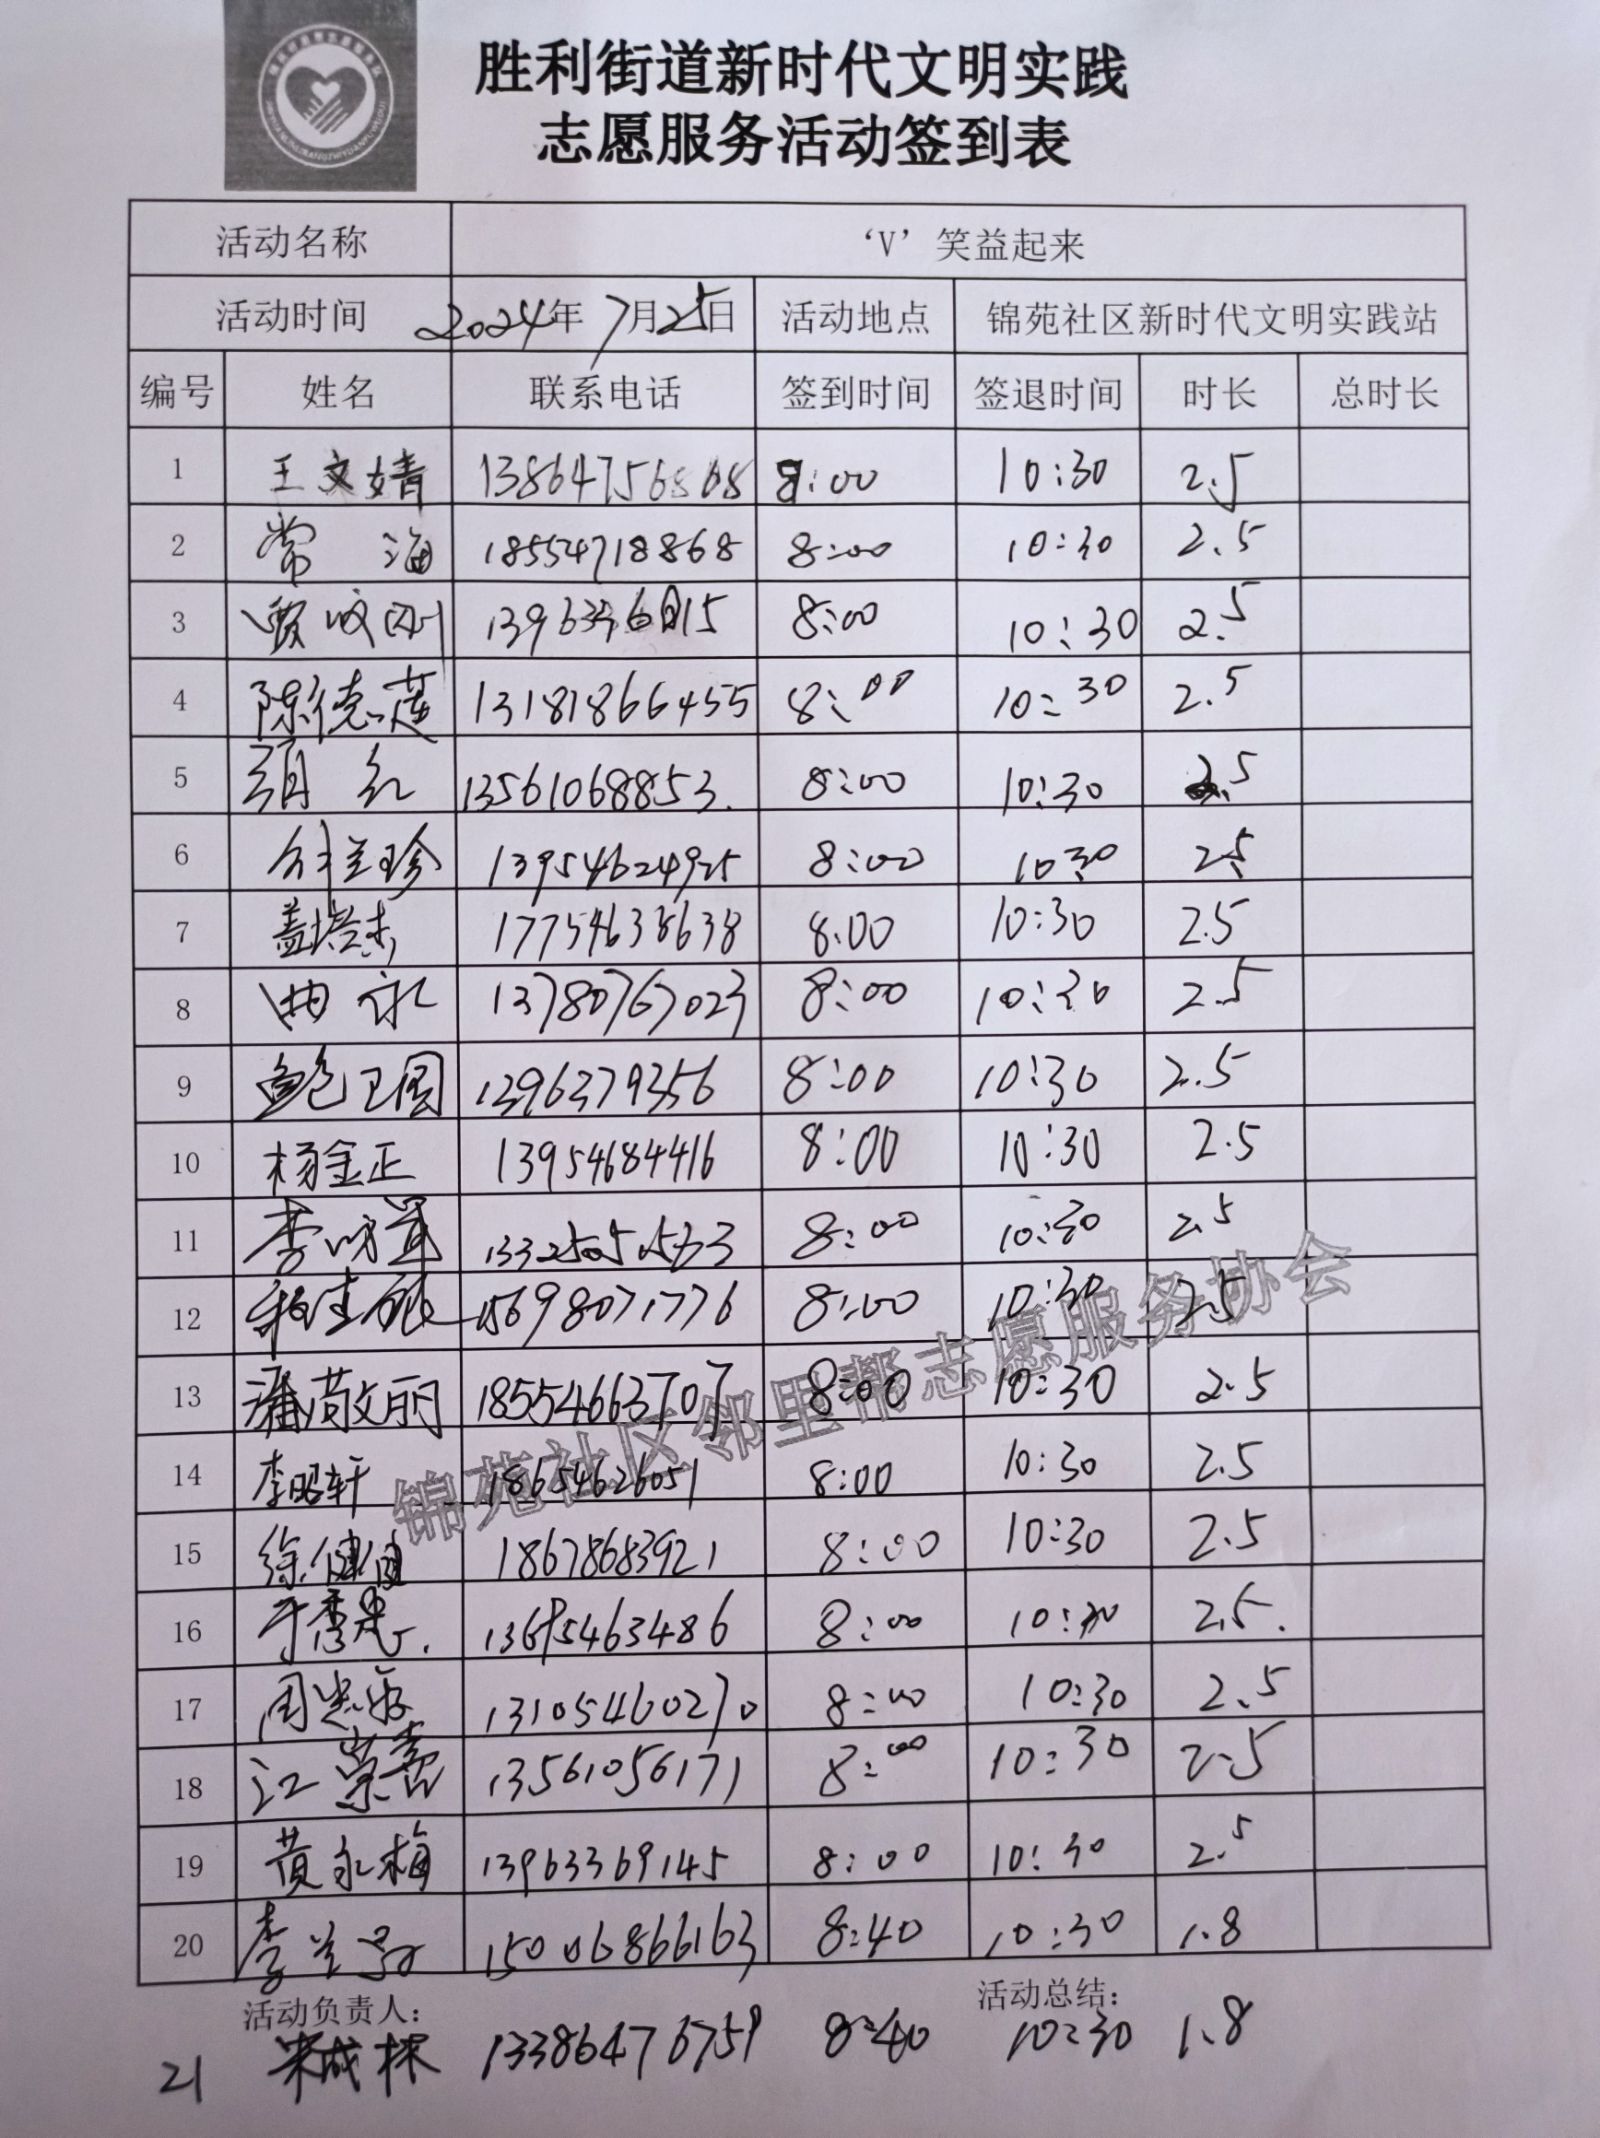 胜利街道新时代文明实践
志愿服务活动签到表
活动名称 ‘V’笑益起来
活动时间 2024年 7月25日 活动地点 锦苑社区新时代文明实践站
编号 姓名 联系电话 签到时间 签退时间 时长 总时长
1 王文婧 8:00 10:30 2.5
2 常海 18554718868 8:00 10:30 2.5
3 8:00 10:30 2.5
4 陈德莲 13181866455 8:00 10:30 2.5
5 13561068853. 8:00 10:30 2.5
6 13954624925 8:00 10:30 2.5
7 17754638638 8:00 10:30 2.5
8 曲永 13780767023 8:00 10:30 2.5
9 鲍卫国 1396379356 8:00 10:30 2.5
10 杨金正 13954684416 8:00 10:30 2.5
11 8:00 10:30 2.5
12 15698071776 8:00 10:30 2.5
13 潘敬丽 18554663707 8:00 10:30 2.5
14 李昭轩 18654626051 8:00 10:30 2.5
15 徐健 18678683921 8:00 10:30 2.5
16 13695463486 8:00 10:30 2.5.
17 13105460270 8:00 10:30 2.5
18 江崇喜 13561056171 8:00 10:30 2.5
19 黄永梅 13963369145 8:00 10:30 2.5
20 15006866163 8:40 10:30 1.8
活动负责人: 活动总结:
21 13386476759 8:40 10:30 1.8
锦苑社区邻里帮志愿服务协会